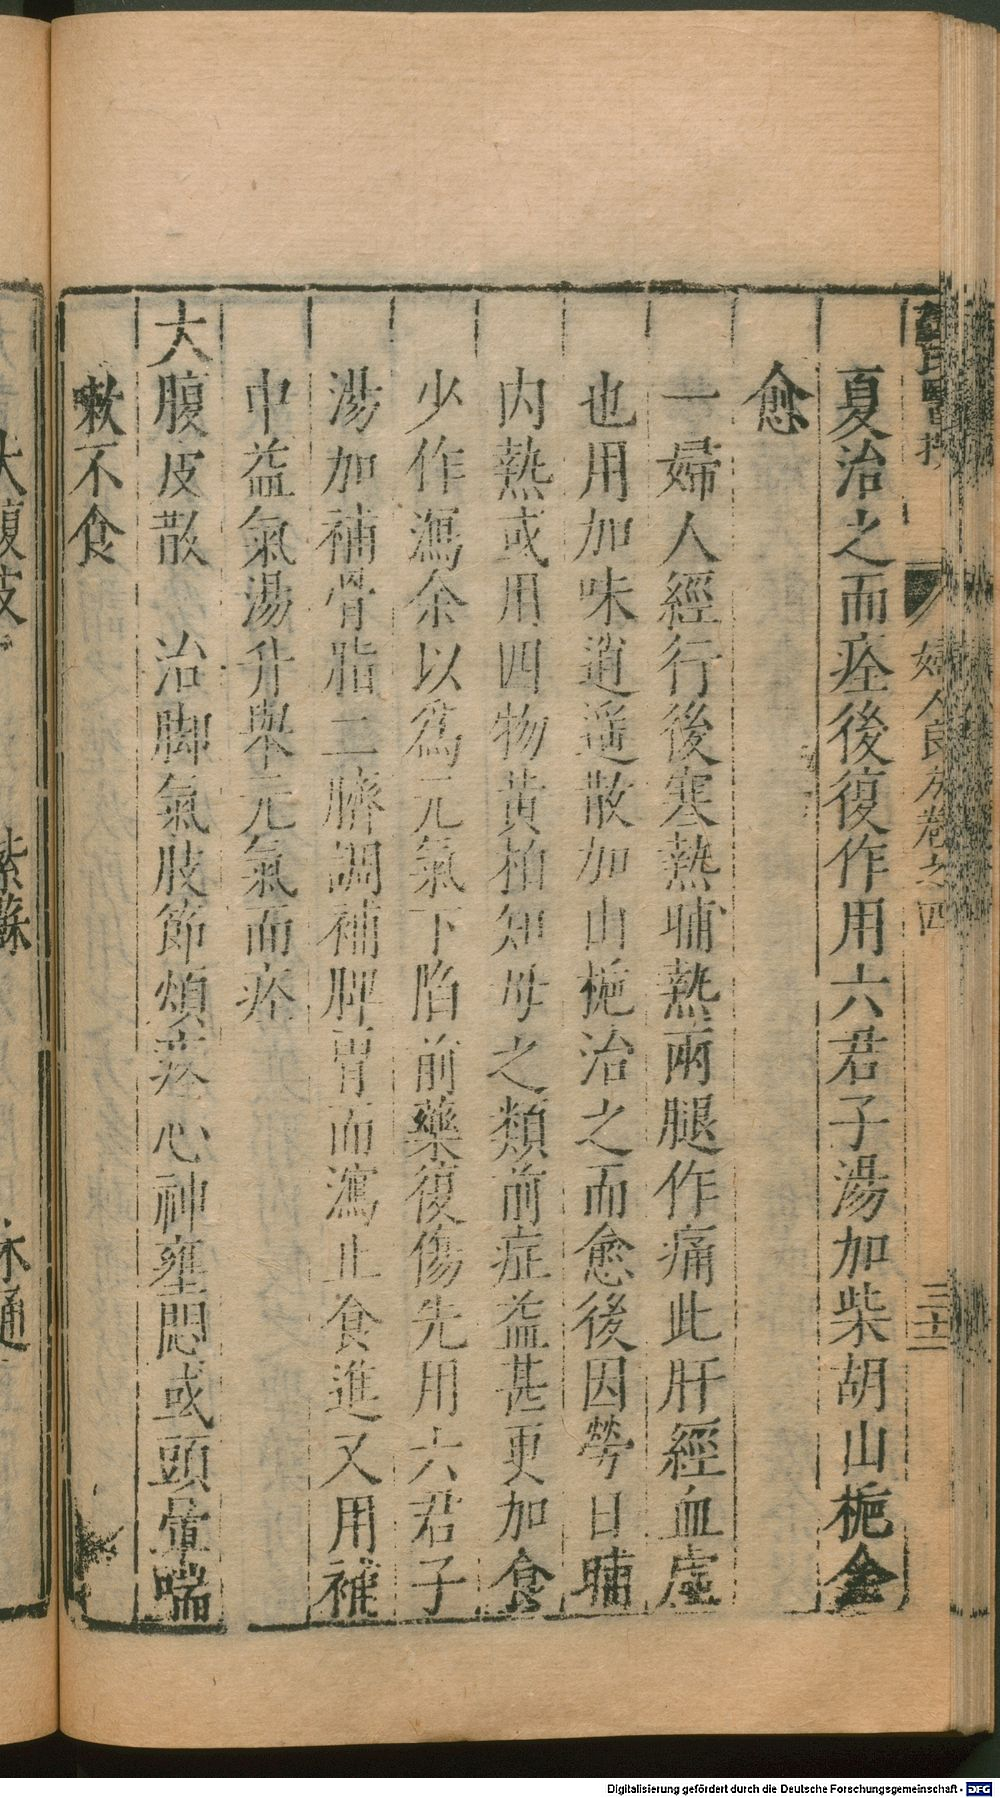 夏治之而痊後復作用六君子湯加柴胡山梔全
愈
一婦人經行後寒熱晡熱兩腿作痛此肝經血虛
也用加味逍遥散加山梔治之而愈後因勞日晡
内熱或用四物黄柏知母之類前症益甚更加食
少作瀉余以為元氣下陷前藥復傷先用六君子
湯加補骨脂二臍調補脾胃而瀉止食進又用補
中益氣湯升舉元氣而痊
大腹皮散　治脚氣肢節煩疼心神壅悶或頭暈喘
嗽不食
婦人良方卷之四
大腹皮
紫蘇
木通
Digitalisierung gefördert durch die Deutsche Forschungsgemeinschaft - DFG